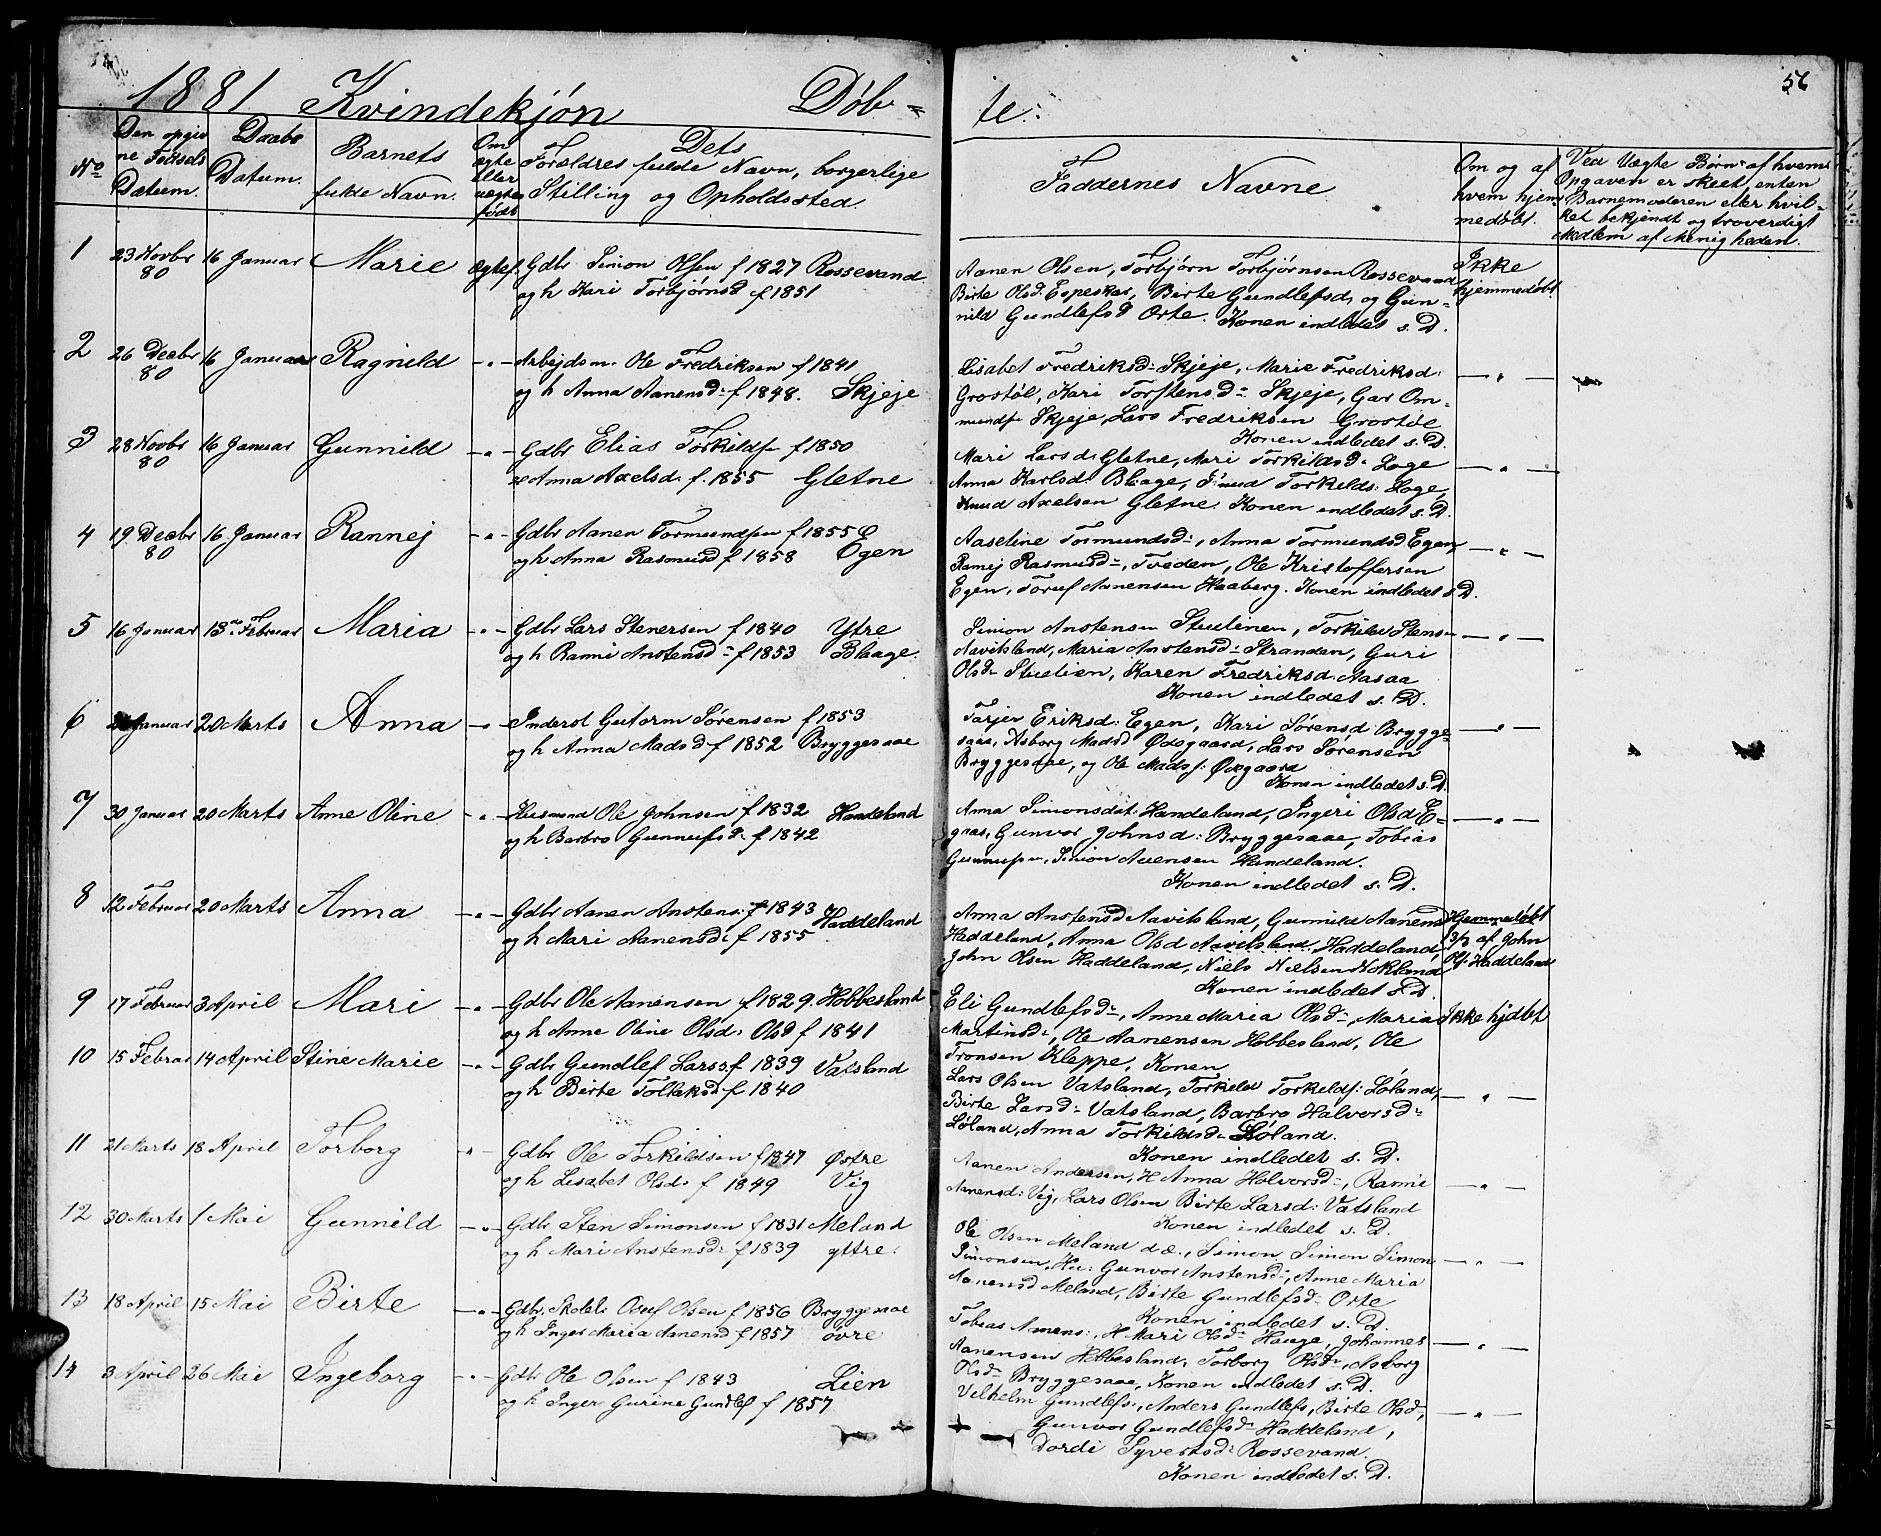 56
1881 Kvindekjøn Døb-
te.
No
Den opgiv
ne Fødsels
Datum.
Daabs
Datum.
Barnets
fulde Navn.
Om
ægte
eller
uægte
født
Dets
Forældres fulde Navn, borgerlige
Stilling og Opholdssted
Faddernes Navne
Om og af
hvem hjem
medøbt.
Ved Uægte Børn af hvem
Opgaven er skeet, enten
Barnemoderen eller hvil-
ket bekjendt og troverdigt
Medlem af Menigheden.
1 23 Novbr 80 16 Januar Marie Ægtef. Gdbr Simon Olsen f 1827 Rossevand
og h Kari Torbjørnsd f 1851
Aanen Olsen, Torbjørn Torbjørnsen Rossevand
Birte Olsd. Espeskar, Birte Gundlefsd, og Gun-
nild Gundlefsd Orte. Konen indledet s. D.
Ikke
hjemmedøbt
2 26 Decbr 80 16 Januar Ragnild -"- Arbejdsm. Ole Fredriksen f 1841
og h Anna Aanensd f 1848. Skjeje
Lisabet Fredriksd Skjeje, Marie Fredriksd.
Grostøl, Kari Torstensd Skjeje, Om-
Skjeje, Lars Fredriksen Grostøl
Konen indledet s. D.
-"-
3 28 Novbr 80 16 Januar Gunnild -"- Gdbr Elias Torkilds f 1850
Anna Axelsd. f. 1855 Gletne
Mari Larsd. Gletne, Mari Torkildsd. Loge
Anna Karlsd. Blaage, Torkelds. Loge,
Knud Axelsen Gletne. Konen indledet s. D.
-"-
4 19 Decbr 80 16 Januar Rannej -"- Gdbr Aanen f 1855
og h Anna Rasmusd f 1858 Egen
Aaseline Tormundsd, Anna Tormundsd Egen,
Ramej Rasmusd, Tveden, Ole Kristoffersen
Egen, Aanensen Haaberg. Konen indledet s D.
-"-
5 16 Januar 13 Februar Maria -"- Gdbr Lars Stenersen f 1840 Ytre
og h Ranni Anstensd f 1853 Blaage.
Simon Anstensen Stuelinen, Torkild Stens
Aavitsland, Maria Anstensd Stranden, Guri
Olsd Stuelien, Karen Fredriksd. Aasaa
Konen indledet s. D.
-"-
6 Januar 20 Marts Anna -"- Inderst Gutorm Sørensen f 1853
og h Anna Madsd f 1852 Bryggesaae
Tarjer Eriksd. Egen, Kari Sørensd Brygge-
saae, Asborg Madsd Ødegaard, Lars Sørensen
Bryggesaae, og Ole Mads Ødegaard
Konen indledet s. D.
-"-
7 30 Januar 20 Marts Anne Oline -"- Husmand Ole Johnsen f 1832 Handeland
og h Barbro f 1842
Anna Simonsdt. Handeland, Ingeri Olsd E-
Gunvor Johnsd. Bryggesaae, Tobias
Simon Handeland.
Konen indledet s. D.
-"-
8 12 Februar 20 Marts Anna -"- Gdbr Aanen Anstens. f 1843 Haddeland
og h Mari Aanensd. f 1855
Anna Anstensd Aavitsland, Gunnild Aanensd
Haddeland, Anna Olsd Aavitsland, Haddeland,
John Olsen Haddeland, Niels Nielsen
Konen indledet s. D.
Hjemmedøbt
af John
Haddeland
9 17 Februar 3 April Mari -"- Gdbr Ole Aanensen f 1829. Hobbesland
og h Anne Oline Olsd. Olsd f 1841
Eli Gundlefsd, Anne Maria Olsd, Maria
Martinsd, Ole Aanensen Hobbesland, Ole
Tronsen Kleppe, Konen
Ikke hjdøbt
10 15 Februar 14 April Stine Marie -"- Gdbr Gundlef Larss. f 1839 Vatsland
og h Birte Tollaksd f 1840
Lars Olsen Vatsland, Torkild Torkelds. Løland,
Birte Larsd Vatsland, Barbro Halvorsd
Løland, Anna Torkildsd Løland.
Konen indledet s. D.
-"-
11 21 Marts 18 April Torborg " Gdbr Ole Torkildsen f 1847 Østre
og h Lisabet Olsd. f 1849 Vig
Aanen Andersen, H Anna Halvorsd, Rannie
Aanensd. Vig, Lars Olsen Birte Larsd. Vatsland
Konen indledet s. D.
-"-
12 30 Marts 1 Mai Gunnild -"- Gdbr Sten Simonsen f 1831 Meland
og h Mari Anstensd. f 1839 yttre.
Ole Olsen Meland Simon Simon Simon
Simonsen, Gunvor Anstensd, Anne Maria
Aanensd Meland, Birte Gundlefsd Orte
Konen indledet s. D.
-"-
13 18 April 15 Mai Birte -"- Gdbr. Skolel. Osuf Olsen f 1856 Bryggesaae
og h Inger Maria Aanensd f 1857 øvre
Tobias Aanens., H Mari Olsd Hauge, Johannes
Aanensen Hobbesland, Torborg Olsd, Asborg
Olsd Bryggesaae, Konen indledet s. D.
-"-
14 3 April 26 Mai Ingeborg -"- Gdbr Ole Olsen f 1843 Lien
og h Inger Gurine Gundlef f 1857
Vilhelm Gundlefs., Anders Gundlefs, Birte Olsd,
Gunvor Gundlefsd Haddeland,
Dordi Syvertsd. Rossevand.
Konen indledet s. D.
-"-